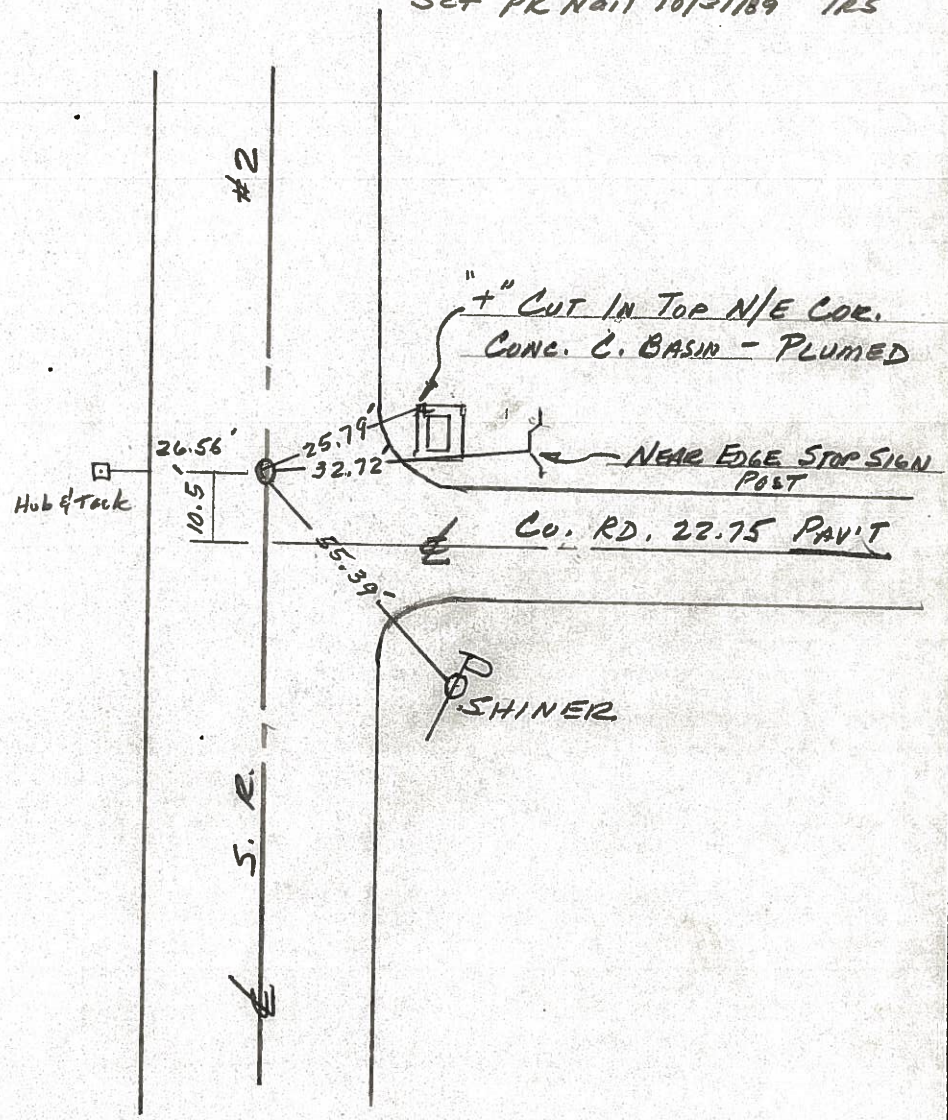 Set PK Nail 10/31/89 IRS
#2
"+" CUT IN TOP N/E COR.
CONC. C. BASIN - PLUMED
26.56'
25.79'
32.72'
NEAR EDGE STOP SIGN
POST
Hub & Tack
10.5
℄
CO. RD. 22.75 PAV'T
55.39'
SHINER
S. R.
℄